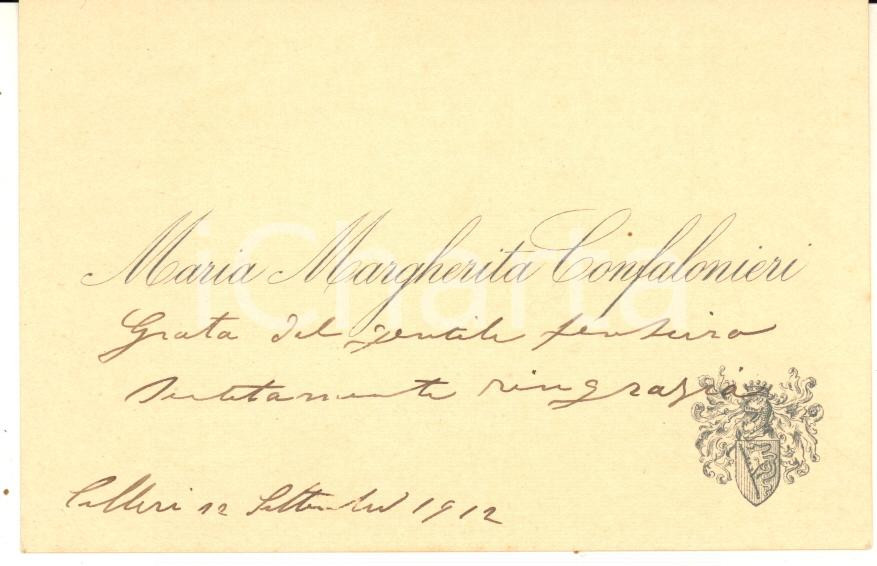 Maria Margherita Confalonieri
iCharta
Grata del gentile pensiero
sentitamente ringrazia
12 Settembre 1912